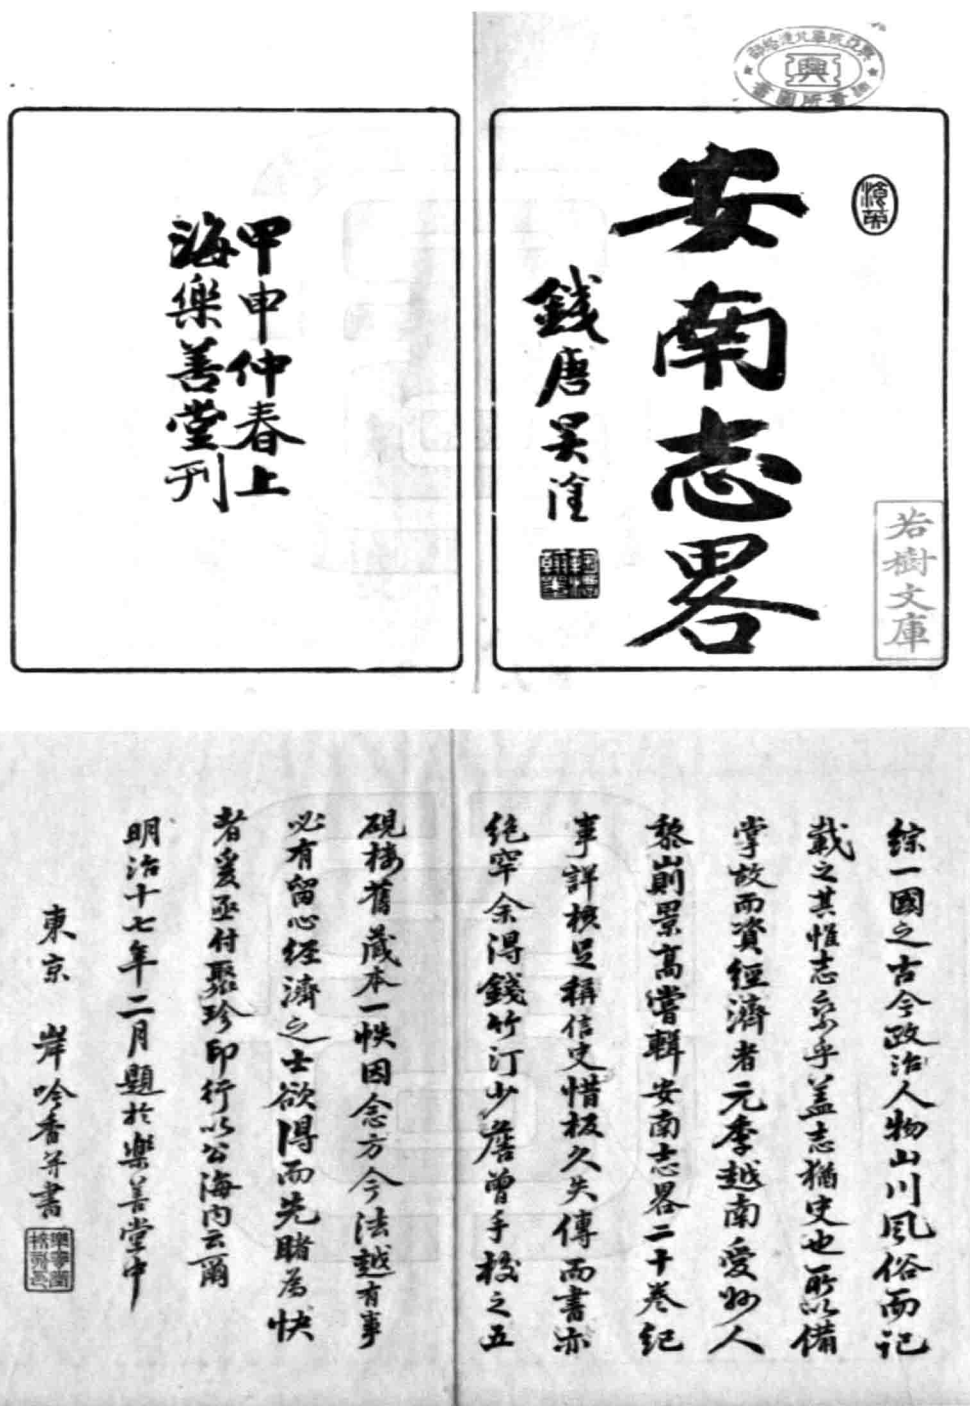 安南志畧
錢唐吳淦
若樹文庫
甲申仲春上
海樂善堂刊
綜一國之古今政治人物山川風俗而記
載之其惟志乘乎蓋志猶史也所以備
掌故而資經濟者元季越南愛州人
黎崱景高嘗輯安南志畧二十卷紀
事詳核足稱信史惜板久失傳而書亦
絕罕余得錢竹汀少詹曾手校之五
硯樓舊藏本一帙因念方今法越有事
必有留心經濟之士欲得而先睹為快
者爰亟付聚珍印行以公海內云爾
明治十七年二月題於樂善堂中
東京 岸吟香并書